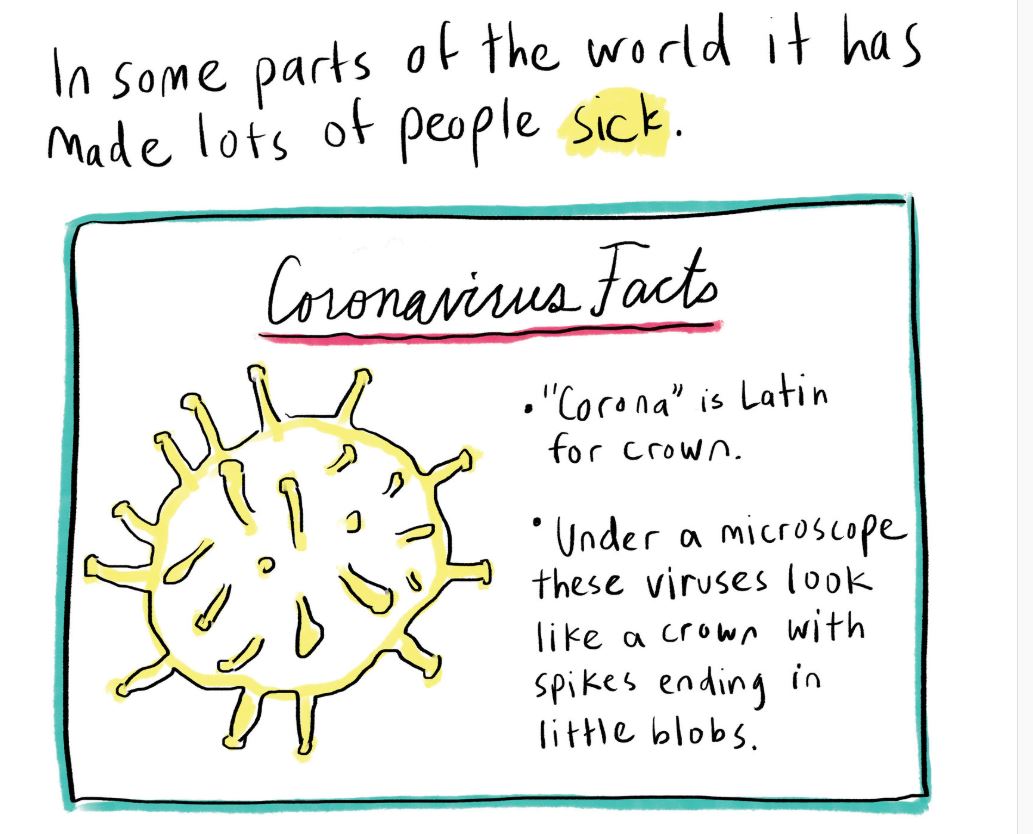 In some parts of the world it has
made lots of people sick.
Coronavirus Facts
• "Corona" is Latin
for crown.
• Under a microscope
these viruses look
like a crown with
spikes ending in
little blobs.